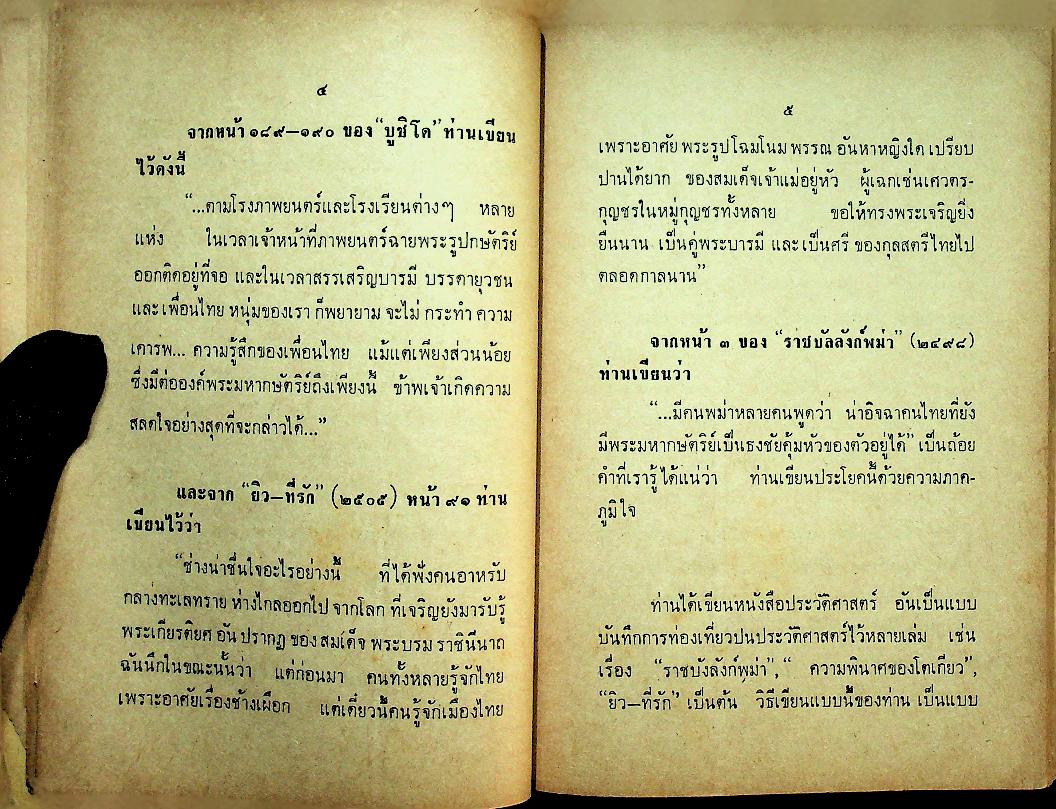 ๔
จากหน้า ๑๘๙–๑๙๐ ของ “บูชิโด” ท่านเขียน
ไว้ดังนี้
“...ตามโรงภาพยนตร์และโรงเรียนต่างๆ หลาย
แห่ง ในเวลาเจ้าหน้าที่ภาพยนตร์ฉายพระรูปกษัตริย์
ออกติดอยู่ที่จอ และในเวลาสรรเสริญบารมี บรรดายุวชน
และ เพื่อนไทย หนุ่มของเรา ก็พยายาม จะไม่ กระทำ ความ
เคารพ... ความรู้สึกของเพื่อนไทย แม้แต่เพียงส่วนน้อย
ซึ่งมีต่อองค์พระมหากษัตริย์ถึงเพียงนี้ ข้าพเจ้าเกิดความ
สลดใจอย่างสุดที่จะกล่าวได้...”
และจาก “ยิว—ที่รัก” (๒๕๐๕) หน้า ๙๑ ท่าน
เขียนไว้ว่า
“ช่างน่าชื่นใจอะไรอย่างนี้ ที่ได้ฟังคนอาหรับ
กลางทะเลทราย ห่างไกลออกไป จากโลก ที่เจริญยังมารับรู้
พระเกียรติยศ อัน ปรากฏ ของ สมเด็จ พระบรม ราชินีนาถ
ฉันนึกในขณะนั้นว่า แต่ก่อนมา คนทั้งหลายรู้จักไทย
เพราะอาศัยเรื่องช้างเผือก แต่เดี๋ยวนี้คนรู้จักเมืองไทย
๕
เพราะอาศัย พระรูปโฉมโนม พรรณ อันหาหญิงใด เปรียบ
ปานได้ยาก ของสมเด็จเจ้าแม่อยู่หัว ผู้เฉกเช่นเศวตร-
กุญชรในหมู่กุญชรทั้งหลาย ขอให้ทรงพระเจริญยิ่ง
ยืนนาน เป็นคู่พระบารมี และ เป็นศรี ของกุลสตรีไทยไป
ตลอดกาลนาน”
จากหน้า ๓ ของ “ราชบัลลังก์พม่า” (๒๔๙๘)
ท่านเขียนว่า
“...มีคนพม่าหลายคนพูดว่า น่าอิจฉาคนไทยที่ยัง
มีพระมหากษัตริย์เป็นธงชัยคุ้มหัวของตัวอยู่ได้” เป็นถ้อย
คำที่เรารู้ได้แน่ว่า ท่านเขียนประโยคนี้ด้วยความภาค-
ภูมิใจ
ท่านได้เขียนหนังสือประวัติศาสตร์ อันเป็นแบบ
บันทึกการท่องเที่ยวปนประวัติศาสตร์ไว้หลายเล่ม เช่น
เรื่อง “ราชบังลังก์พม่า”, “ ความพินาศของโตเกียว”,
“ยิว—ที่รัก” เป็นต้น วิธีเขียนแบบนี้ของท่าน เป็นแบบ